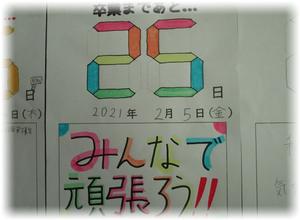 卒業まであと…
25日
2021年 2月5日(金)
みんなで
頑張ろう!!
日
日(木)